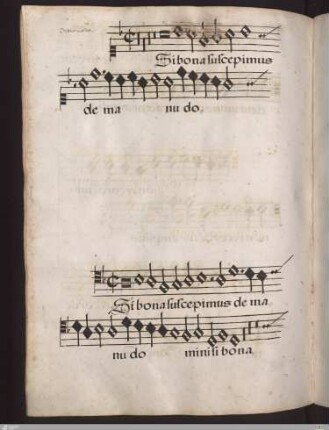 Si bona suscepimus
de ma nu do.
Si bona suscepimus de ma
nu do mini si bona